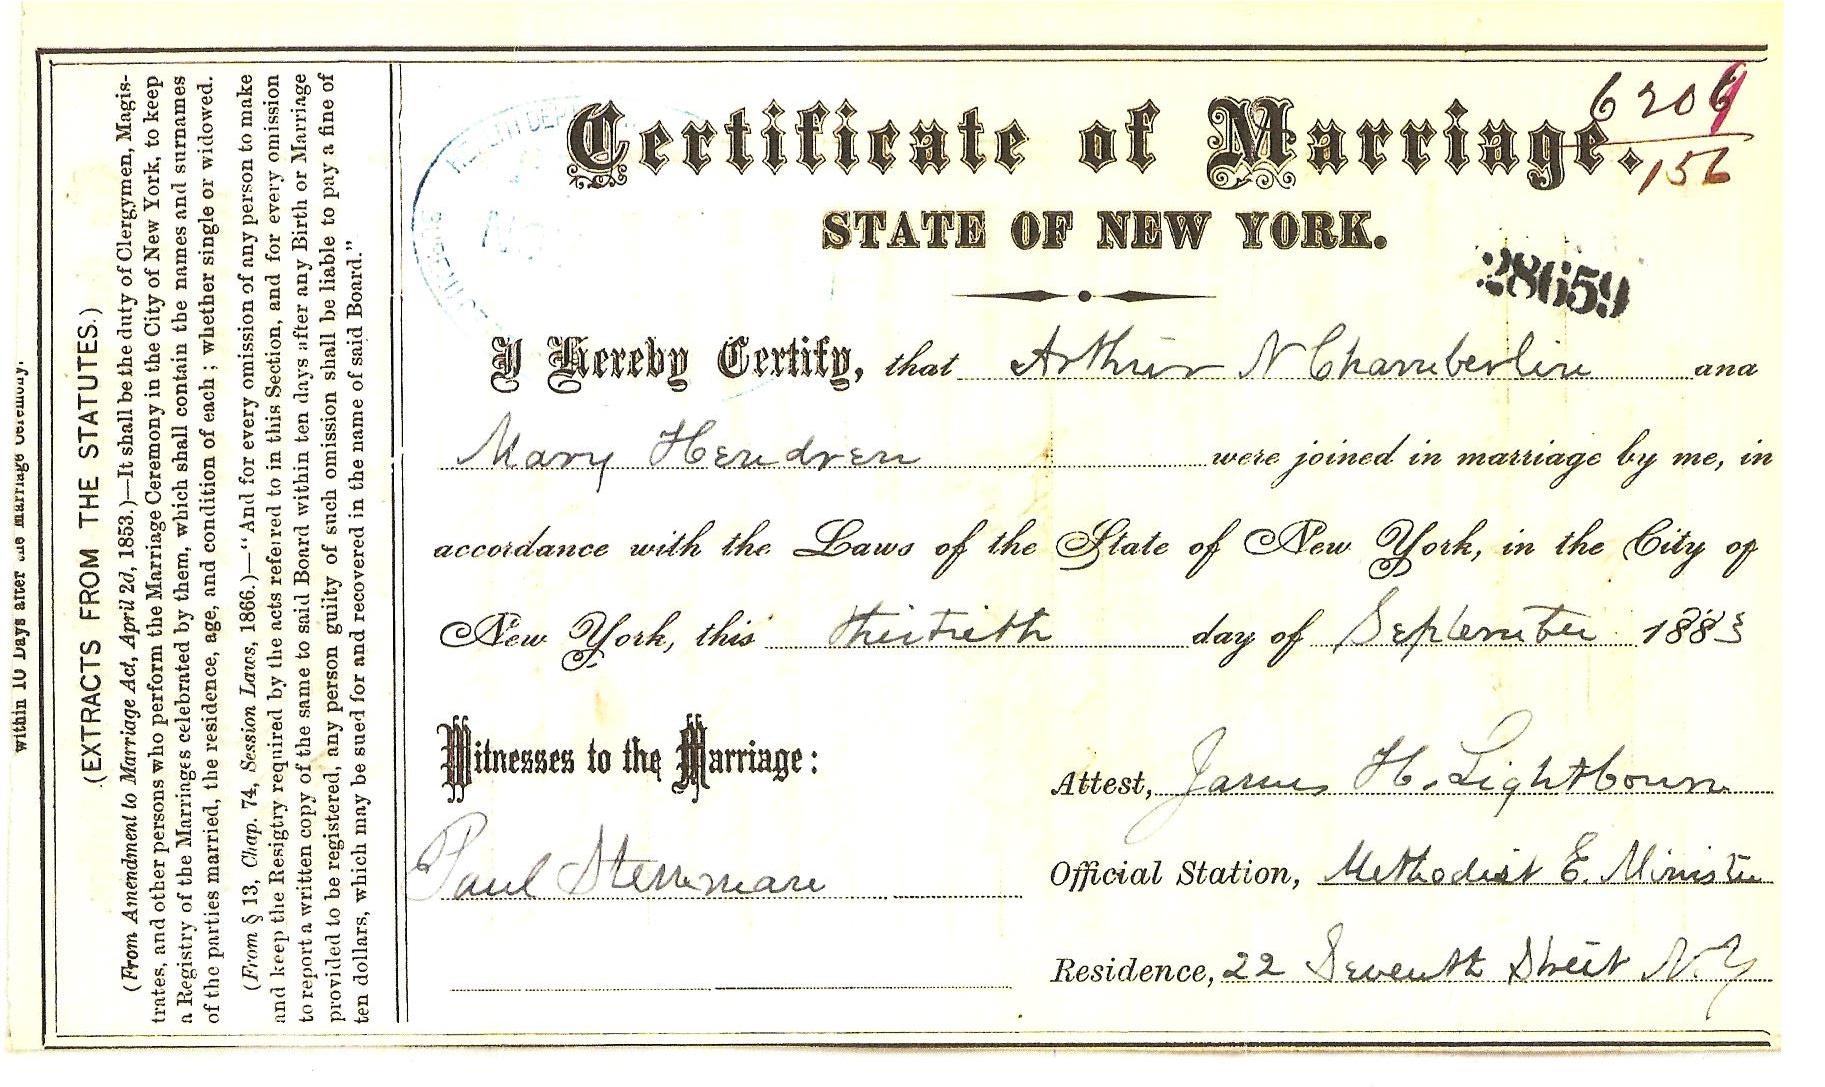 within 10 Days after the marriage ceremony.
(EXTRACTS FROM THE STATUTES.)
(From Amendment to Marriage Act, April 2d, 1853.)—It shall be the duty of Clergymen, Magis-
trates, and other persons who perform the Marriage Ceremony in the City of New York, to keep
a Registry of the Marriages celebrated by them, which shall contain the names and surnames
of the parties married, the residence, age, and condition of each; whether single or widowed.
(From § 13, Chap. 74, Session Laws, 1866.)—“And for every omission of any person to make
and keep the Resigtry required by the acts referred to in this Section, and for every omission
to report a written copy of the same to said Board within ten days after any Birth or Marriage
provided to be registered, any person guilty of such omission shall be liable to pay a fine of
ten dollars, which may be sued for and recovered in the name of said Board.”
HEALTH DEP
6209
156
Certificate of Marriage.
STATE OF NEW YORK.
28659
I Hereby Certify, that Arthur N Chamberlin and
Mary Hendren were joined in marriage by me, in
accordance with the Laws of the State of New York, in the City of
New York, this thirtieth day of September 1883
Witnesses to the Marriage:
Attest, James H. Lightbourn
Paul
Official Station, Methodist E. Minister
Residence, 22 Seventh Street N.Y